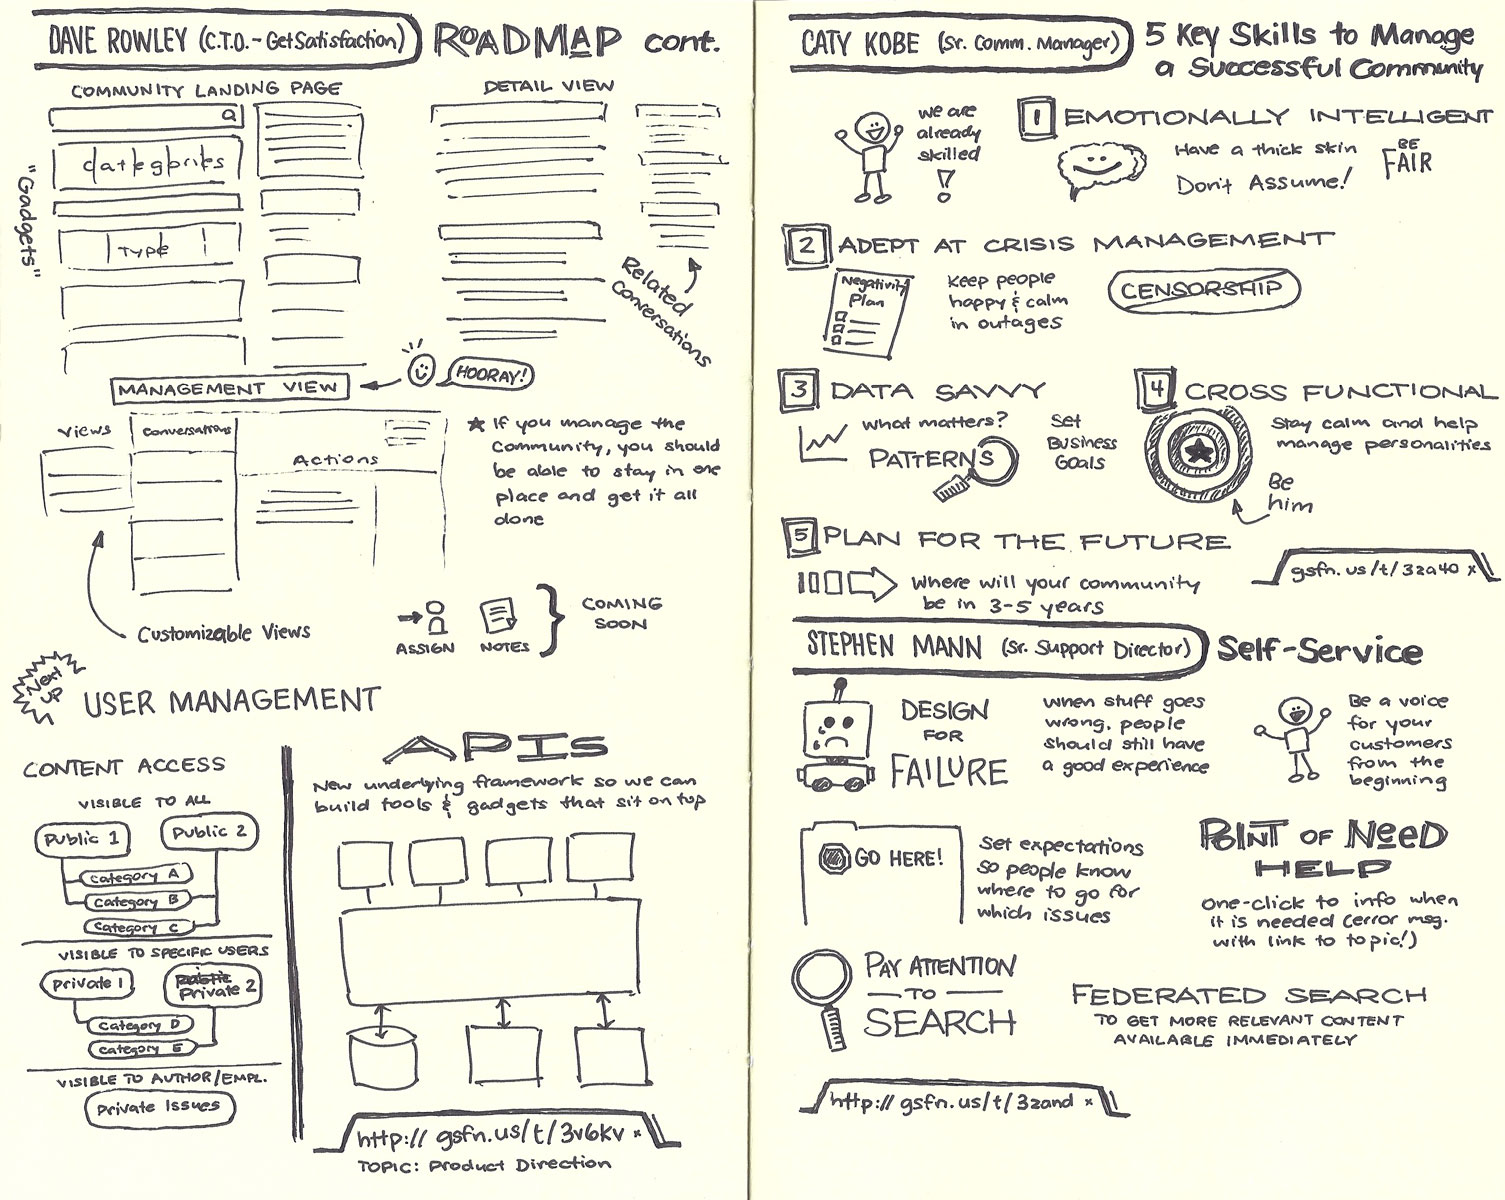 DAVE ROWLEY (C.T.O. - GetSatisfaction) ROADMAP cont.
COMMUNITY LANDING PAGE
DETAIL VIEW
"Gadgets"
categories
TYPE
Related
Conversations
MANAGEMENT VIEW
HOORAY!
Views
Conversations
Actions
★ If you manage the
community, you should
be able to stay in one
place and get it all
done
Customizable Views
ASSIGN
NOTES
COMING
SOON
Next
UP
USER MANAGEMENT
CONTENT ACCESS
VISIBLE TO ALL
Public 1
Public 2
Category A
Category B
Category C
VISIBLE TO SPECIFIC USERS
Private 1
Public
Private 2
Category D
Category E
VISIBLE TO AUTHOR/EMPL.
Private Issues
APIs
New underlying framework so we can
build tools & gadgets that sit on top
http:// gsfn.us/t/3v6kv x
TOPIC: Product Direction
CATY KOBE (Sr. Comm. Manager)
5 Key Skills to Manage
a Successful Community
we are
already
skilled
!
1 EMOTIONALLY INTELLIGENT
Have a thick skin
Don't Assume!
BE
FAIR
2 ADEPT AT CRISIS MANAGEMENT
Negativity
Plan
Keep people
happy & calm
in outages
CENSORSHIP
3 DATA SAVVY
what matters?
PATTERNS
Set
Business
Goals
4 CROSS FUNCTIONAL
Stay calm and help
manage personalities
Be
him
5 PLAN FOR THE FUTURE
Where will your community
be in 3-5 years
gsfn.us/t/32a40 x
STEPHEN MANN (Sr. Support Director) Self-Service
DESIGN
FOR
FAILURE
When stuff goes
wrong, people
should still have
a good experience
Be a voice
for your
customers
from the
beginning
GO HERE!
Set expectations
so people know
where to go for
which issues
POINT OF NEED
HELP
one-click to info when
it is needed (error msg.
with link to topic!)
PAY ATTENTION
TO
SEARCH
FEDERATED SEARCH
TO GET MORE RELEVANT CONTENT
AVAILABLE IMMEDIATELY
http:// gsfn.us/t/32and x